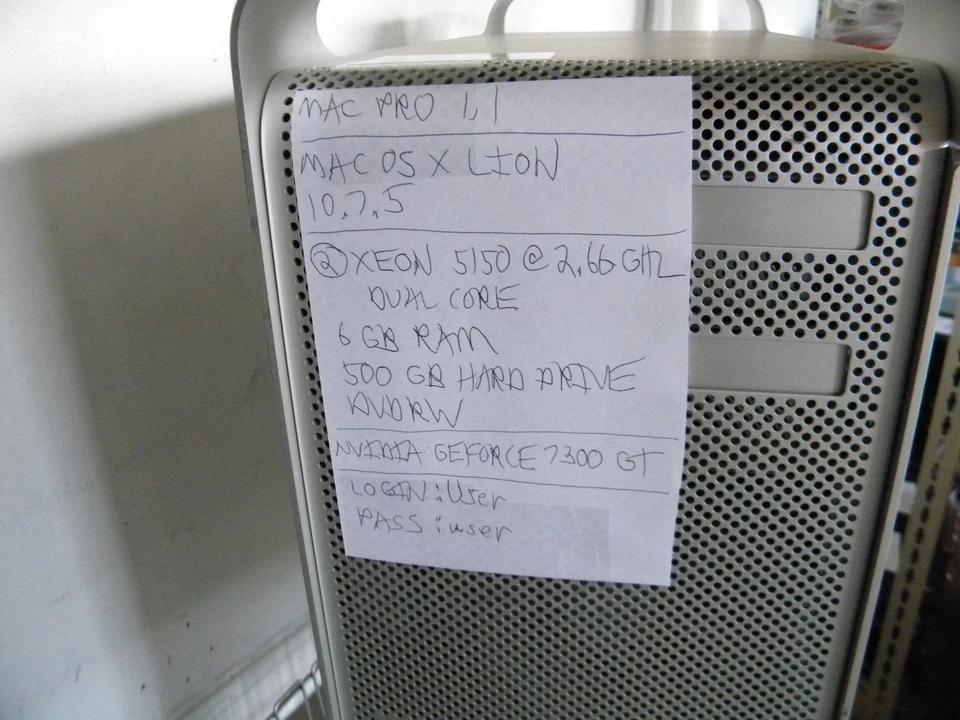 MAC PRO 1,1
MAC OS X LION
10.7.5
② XEON 5150 @ 2.66 GHZ
DUAL CORE
6 GB RAM
500 GB HARD DRIVE
DVDRW
NVIDIA GEFORCE 7300 GT
LOGIN: User
PASS: user